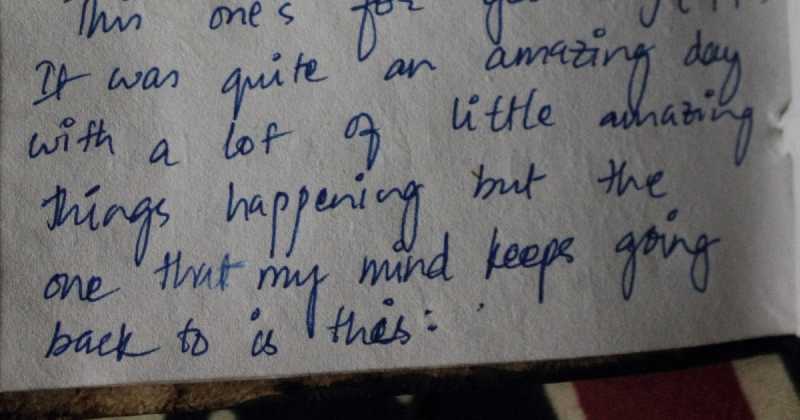 This one's for
It was quite an amazing day
with a lot of little amazing
things happening but the
one that my mind keeps going
back to is this: